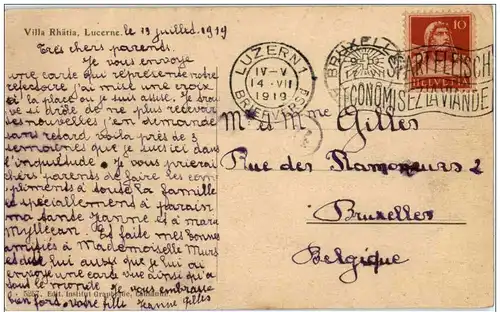 Villa Rhätia, Lucerne.
le 13 juillet 1919
Très chers parents.
Je vous envoye
une carte qui représente notre
réfectoire j'ai mise une croix
à la place ou je suis assise. Je trouve
si drôle de ne plus recevoir
des nouvelles j'en demande
sans retard voila près de 3
semaines que je suis ici dans
l'inquiétude. Je vous prierai
chers Parents de faire les com
pliments à toute la famille
et spécialement à parain
ma tante Jeanne et à
Myllecan. Et faite mes bonne
amitiés à Mademoiselle
et dite lui aussi que je lui ai
envoye une carte vue ainsi qu'à
tout le monde. Je vous embrasse
bien fort, votre fille Jeanne Gilles
5287. Edit. Institut Graphique, Lausanne.
LUZERN 1
IV-V
14 VII
1919
BRIEFVERSD
BRUXELLES
SPART FLEISCH
ECONOMISEZ LA VIANDE
10
HELVETIA
M et Mme Gilles
Rue des Ramoneurs 2
Bruxelles
Belgique